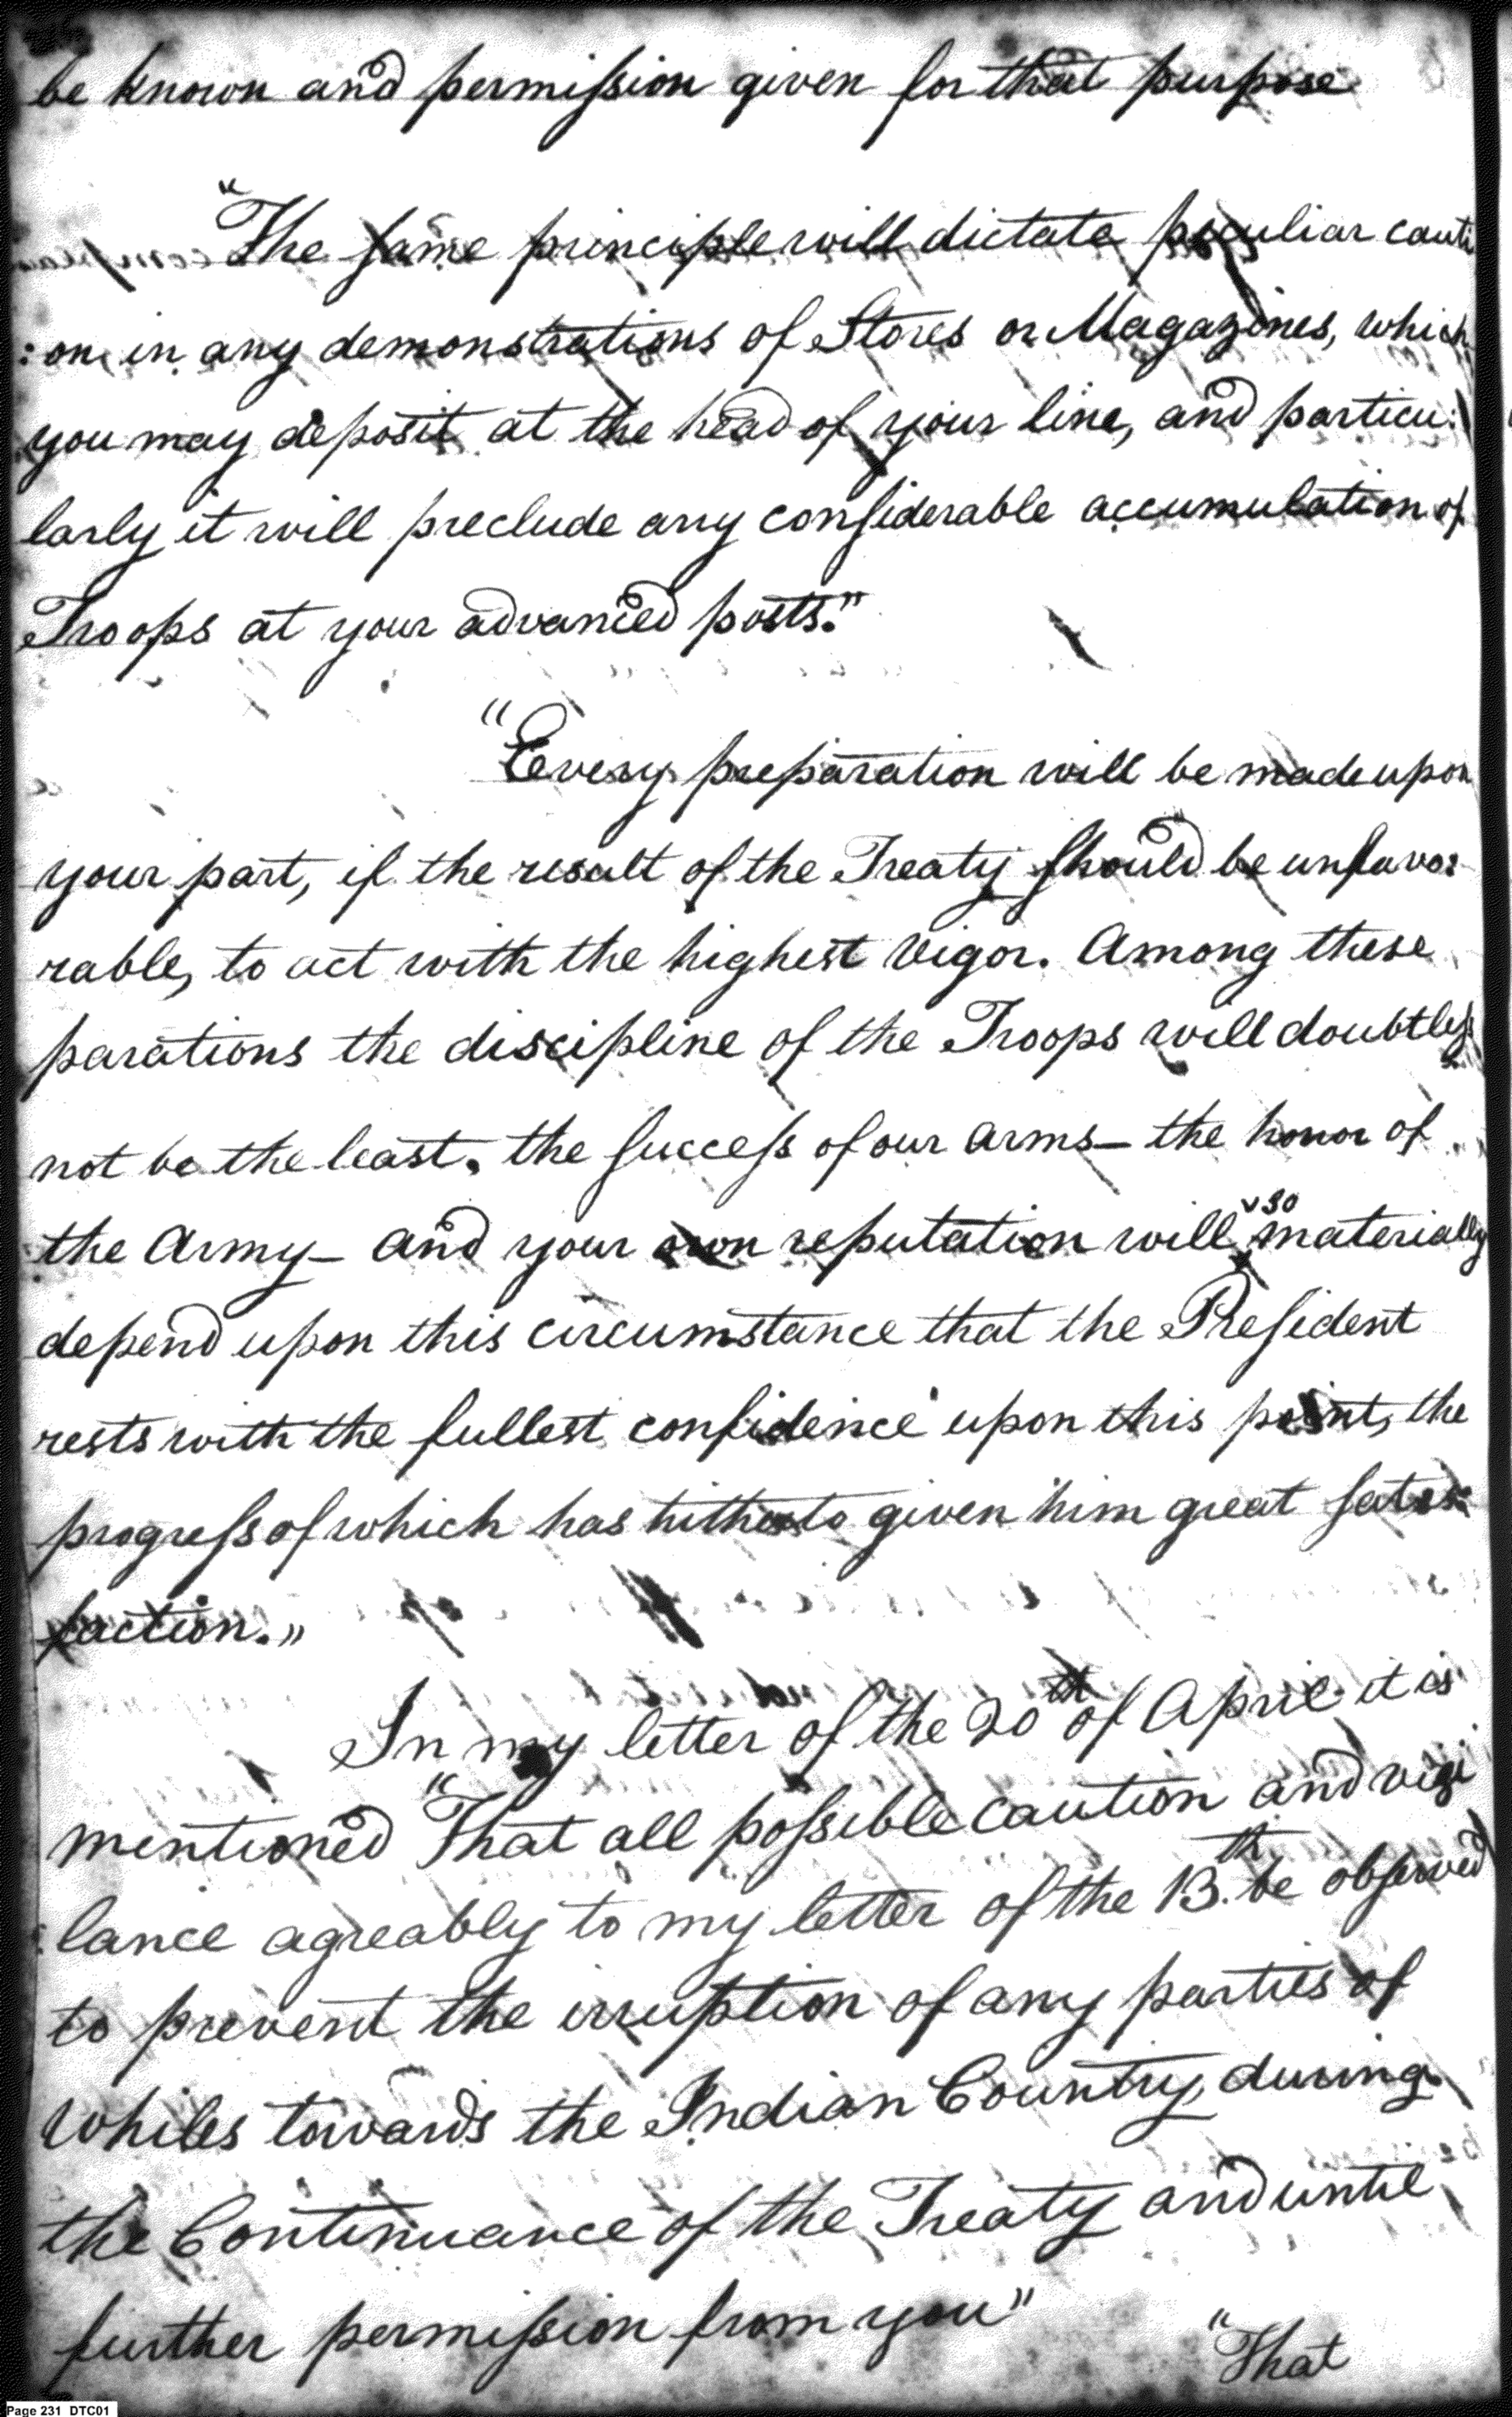 be known and permiſsion given for that purpose
"The ſame principle will dictate peculiar cauti
: on, in any demonstrations of Stores or Magazines, which
you may deposit at the head of your line, and particu:
larly it will preclude any conſiderable accumulation of
Troops at your advanced posts."
"Every preparation will be made upon
your part, if the result of the Treaty ſhould be unfavo:
rable, to act with the highest vigor. Among these
parations the discipline of the Troops will doubtleſs
not be the least. the ſucceſs of our arms— the honor of
the Army— and your own reputation will so materially
depend upon this circumstance that the Preſident
rests with the fullest confidence upon this point, the
progreſs of which has hitherto given him great ſatis:
faction."
In my letter of the 20th of April it is
mentioned "That all poſsible caution and vigi
: lance agreably to my letter of the 13.th be obſerved
to prevent the irruption of any parties of
Whites towards the Indian Country, during
the Continuance of the Treaty and until
further permiſsion from you"
"That
Page 231 DTC01